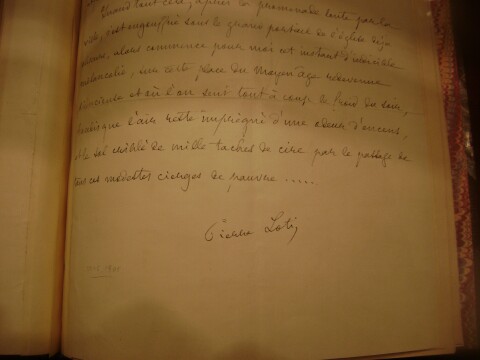 Quand tout cela, après la promenade lente par la
s'est engouffré sous le grand portail de l'église déjà
alors commence pour moi cet instant d'indicible
mélancolie, sur cette place du Moyen Age redevenue
et où l'on sent tout à coup le froid du soir,
l'air reste imprégné d'une odeur d'encens,
et le sol criblé de mille taches de cire par le passage de
tous ces modestes cierges de pauvre .....
Pierre Loti